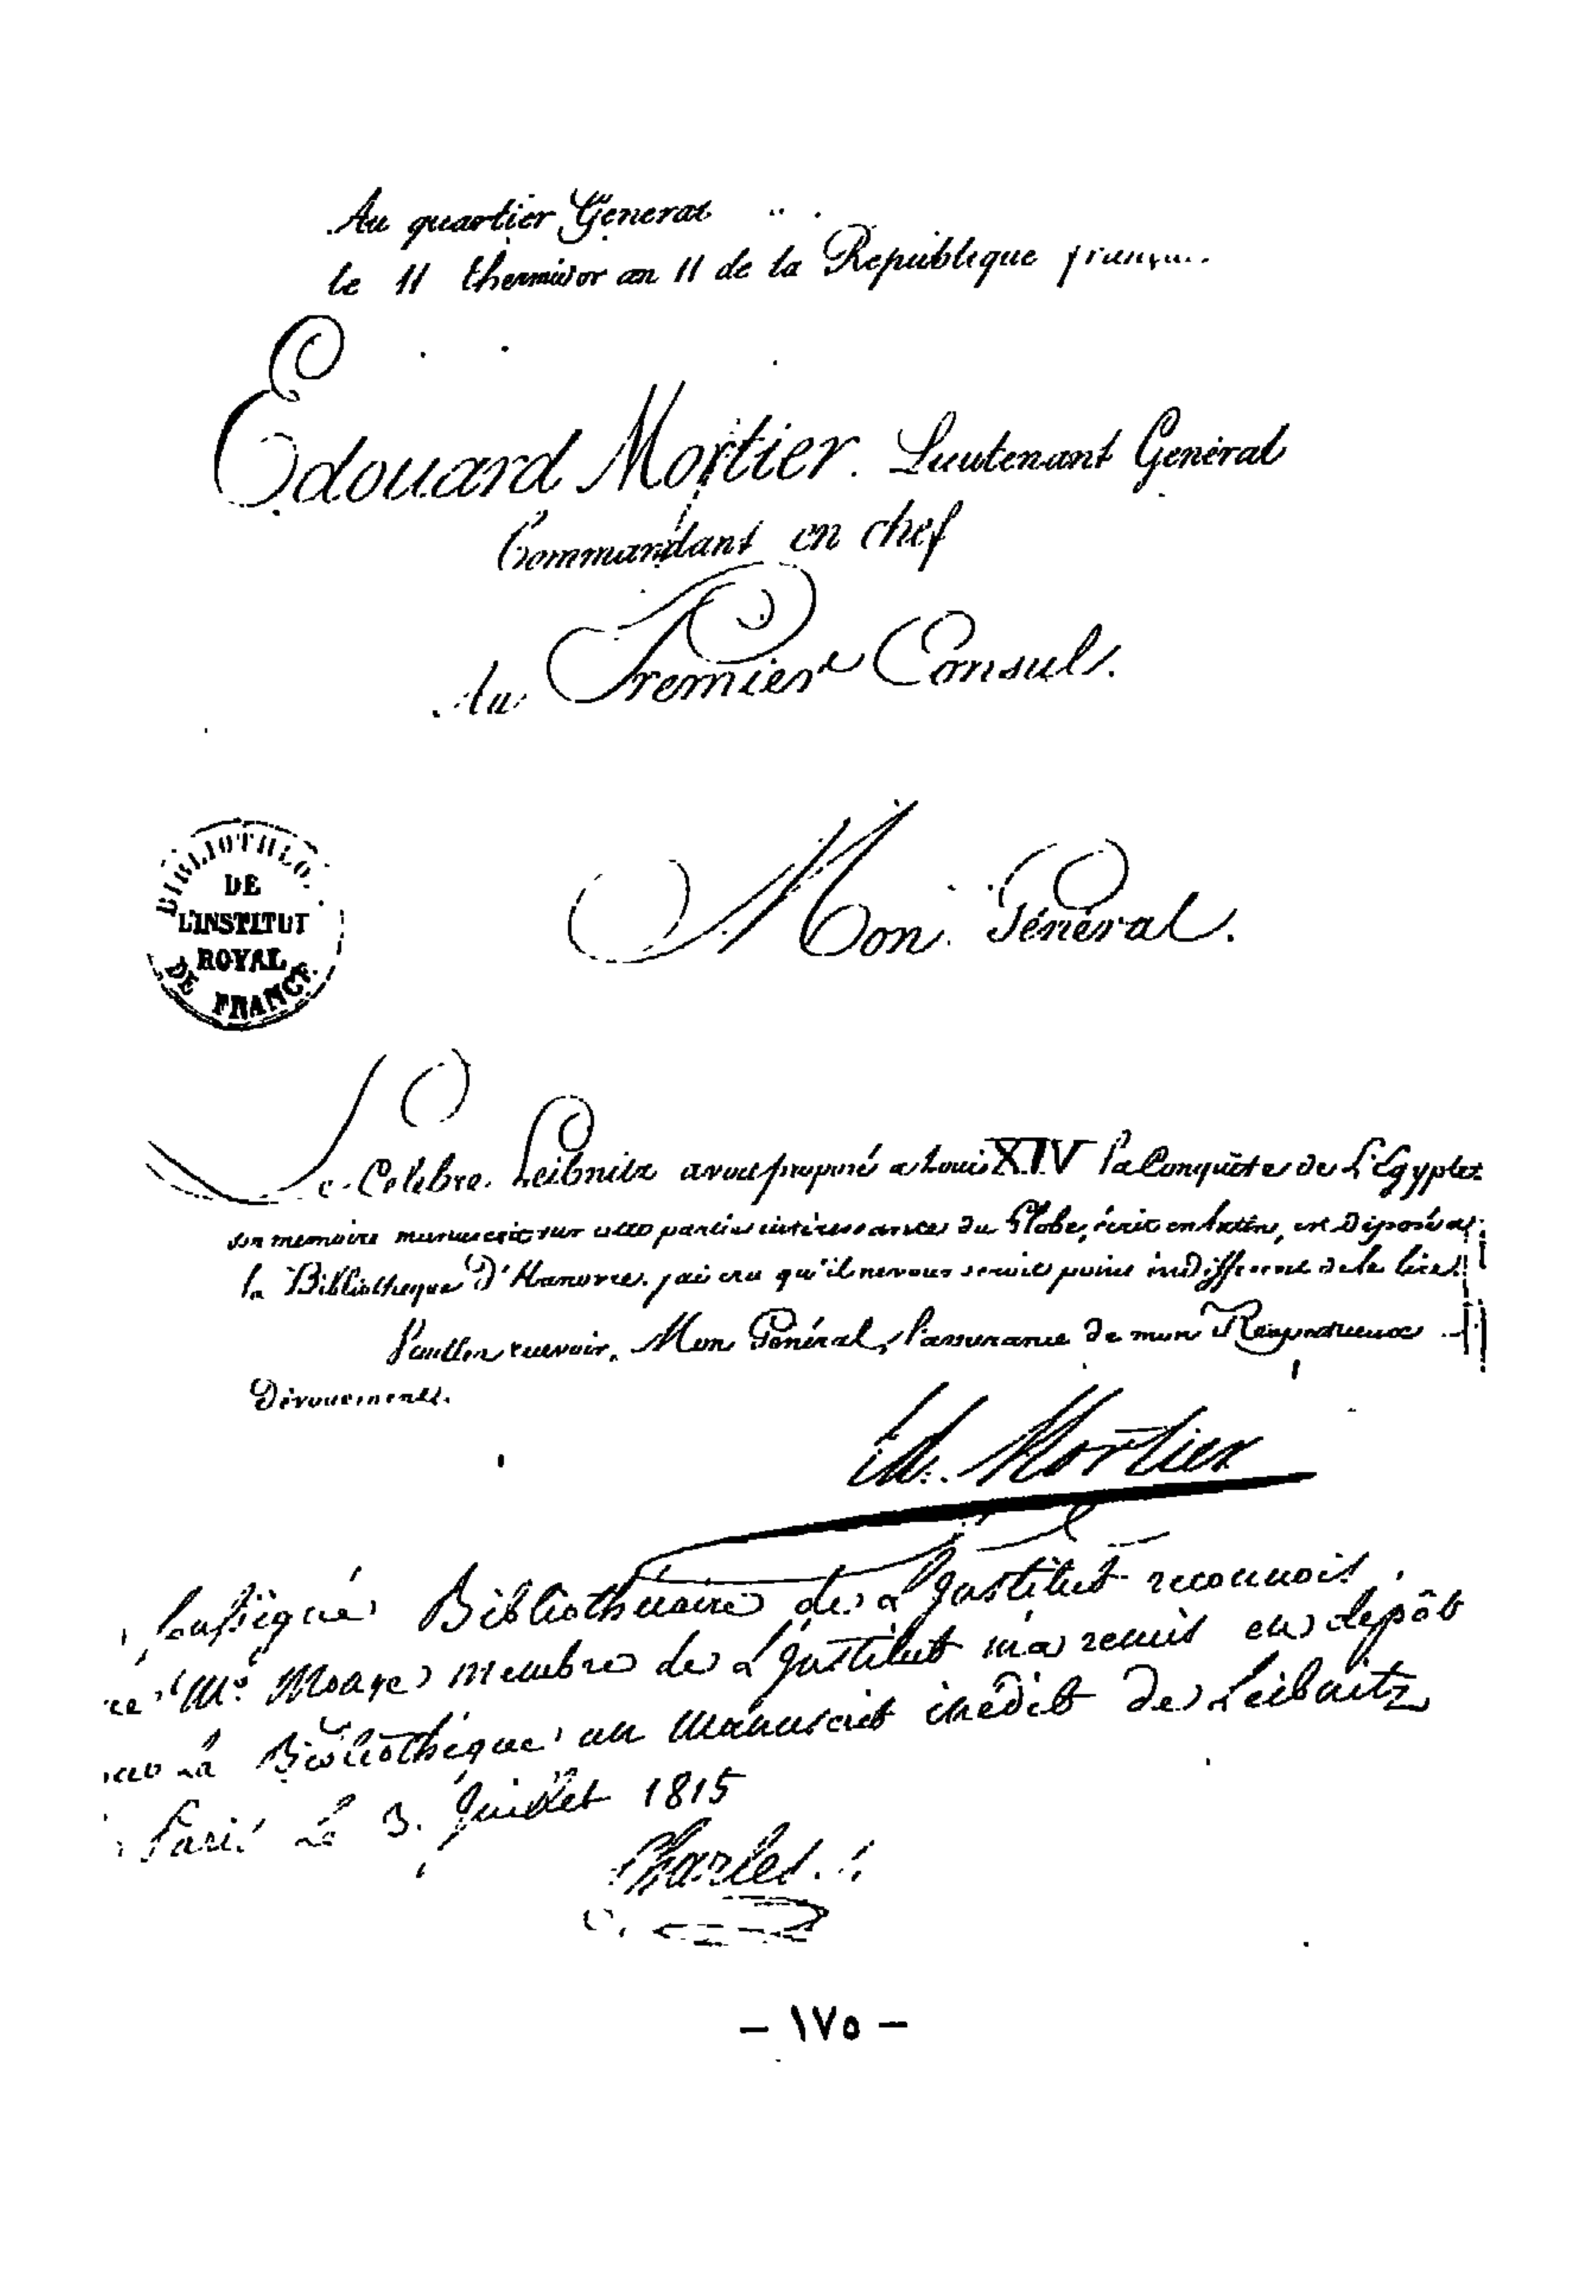 Au quartier General
le 11 thermidor an 11 de la Republique françai..
Edouard Mortier. Lieutenant Général
Commandant en chef
Au Premier Consul.
BIBLIOTHEQ.
DE
L'INSTITUT
ROYAL
DE FRANCE.
Mon Général.
Le Célebre Leibnitz avoit proposé a Louis XIV la Conquête de L'Egypte:
son memoire manuscrit sur cette partie intéressante du Globe, écrit en latin, est déposé a
la Bibliotheque D'Hanovre. j'ai cru qu'il ne vous seroit point indifferent de le lire.
Veuillez recevoir, Mon Général, l'assurance de mon Respectueux
Dévouement.
Ed. Mortier
soussigné Bibliothecaire de L'Institut reconnois
Mr. Monge membre de L'Institut m'a remis en depôt
La Bibliothèque un manuscrit inédit de Leibnitz
Paris Le 3. Juillet 1815
Charles.
– ١٧٥ –